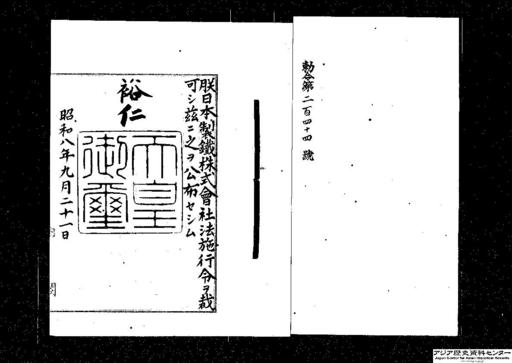 勅令第二百四十四號
朕日本製鐵株式會社法施行令ヲ裁
可シ茲ニ之ヲ公布セシム
裕仁
天皇
御璽
昭和八年九月二十一日
アジア歴史資料センター
Japan Center for Asian Historical Records